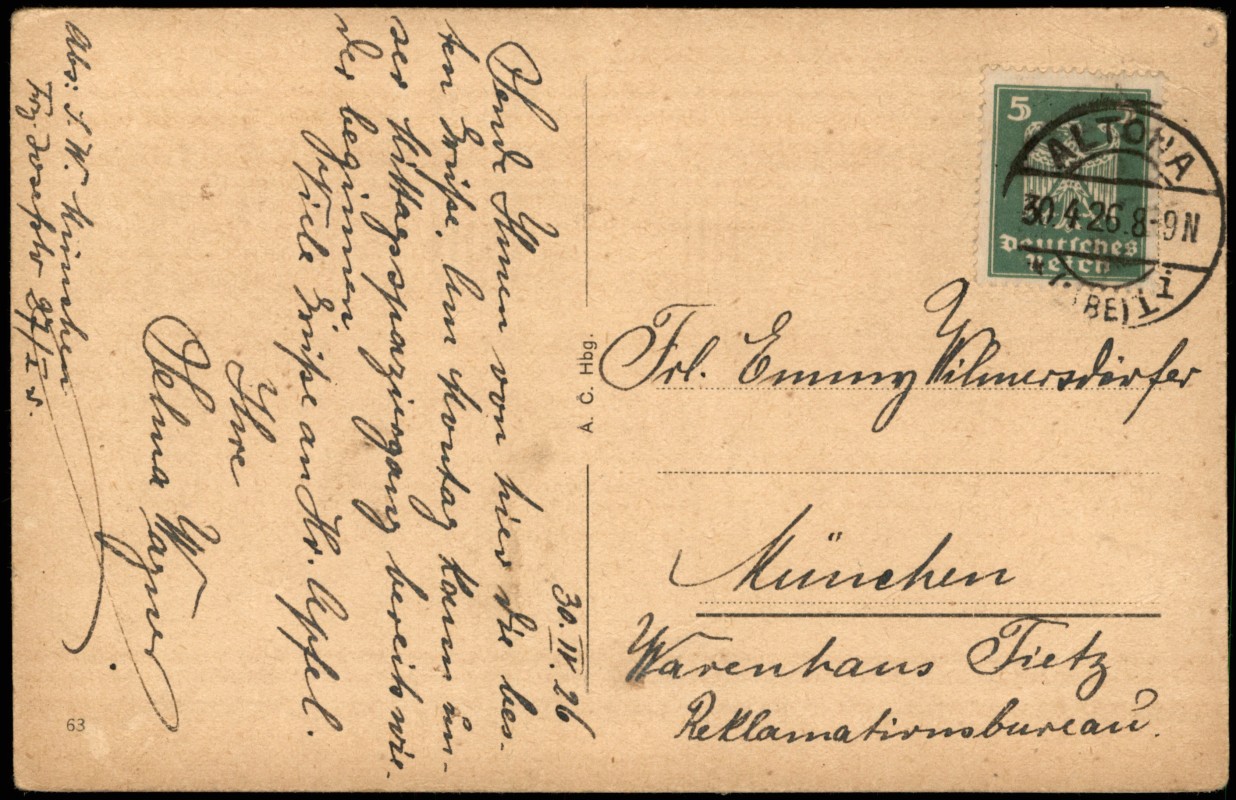 30. IV. 26
Sende Ihnen von hier die bes-
ten Grüße. Am Montag kann un-
ser Mittagsspaziergang bereits wie-
der beginnen.
Viele Grüße an Hr. Apfel.
Ihre
Selma Wagner
Abs: S. W. München
Frz. Josefstr 27/I r.
63
A. C. Hbg.
5
Deutsches
Reich
ALTONA
30.4.26.8-9N
(BE)
Frl. Emmy Wilmersdörfer
München
Warenhaus Tietz
Reklamationsbureau.